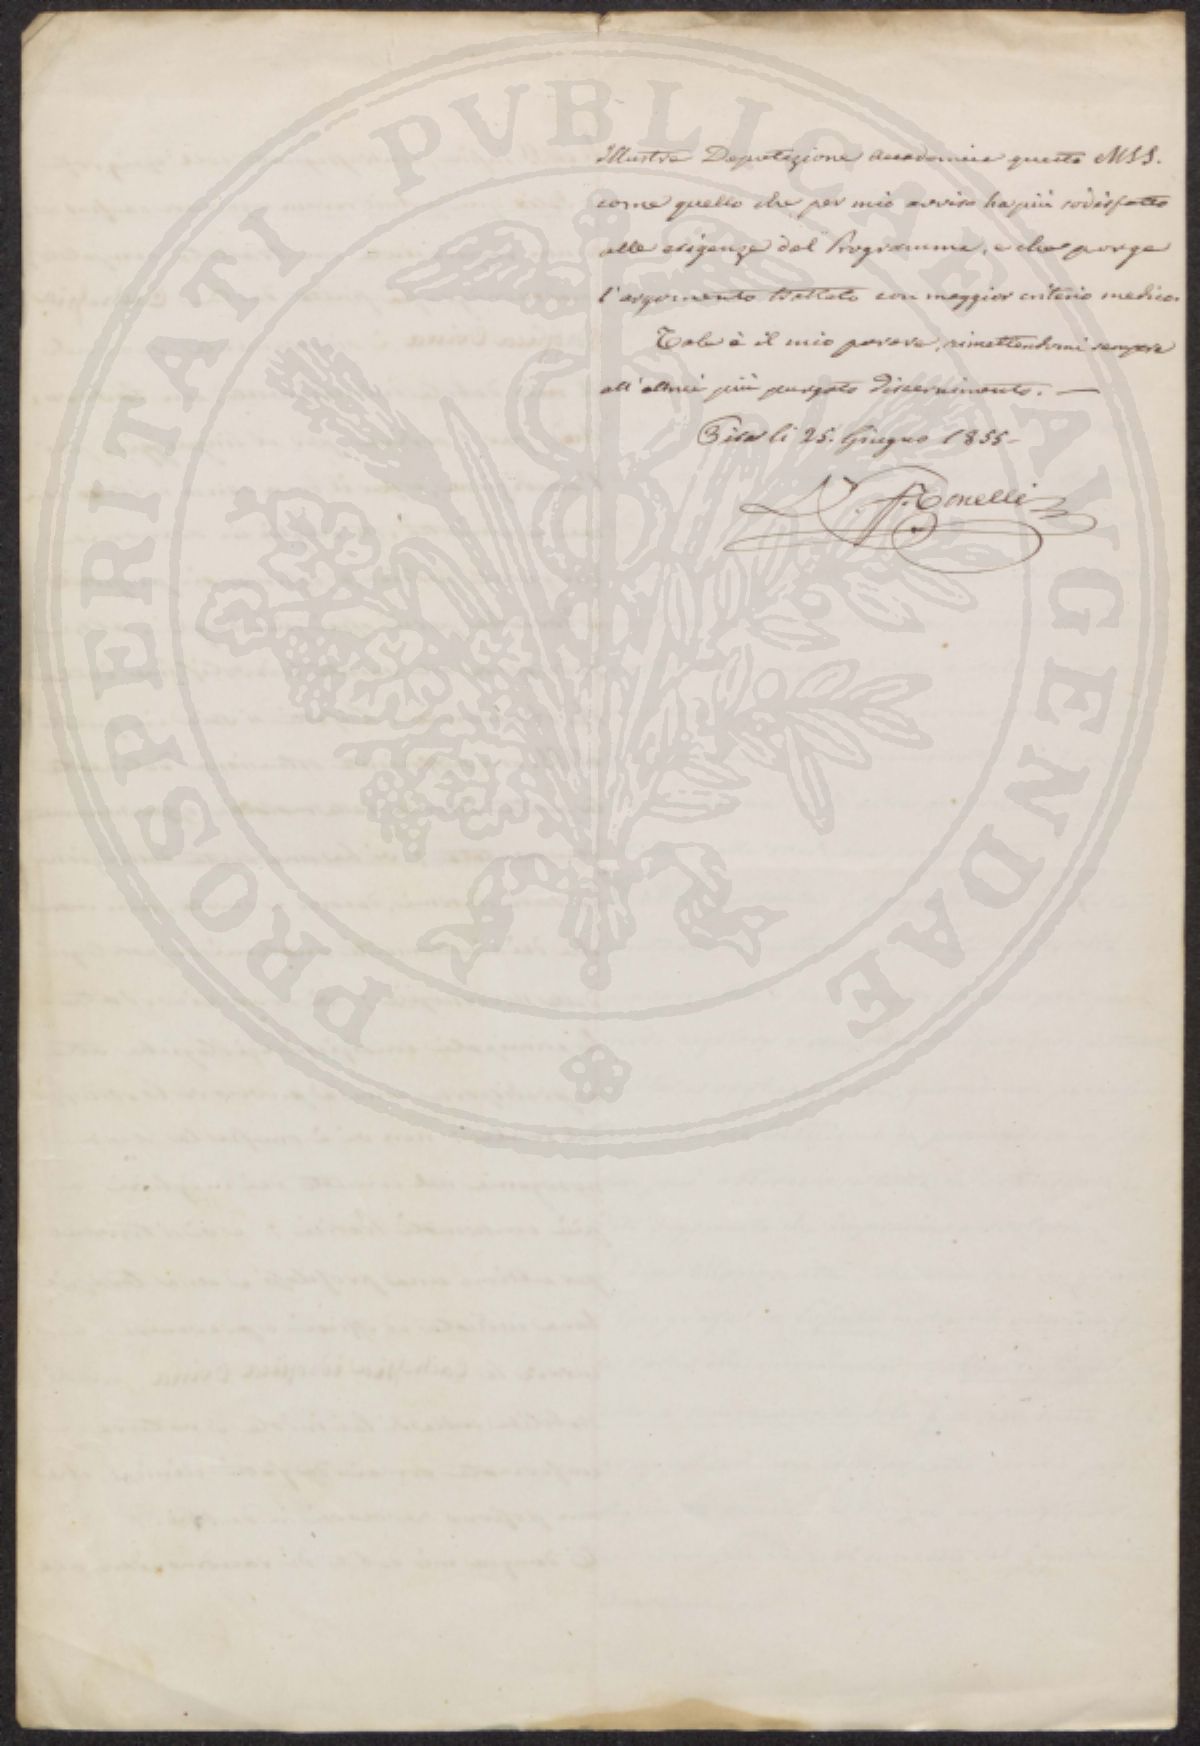 Illustre Deputazione Accademica questo MSS.
come quello che per mio avviso ha più sodisfatto
alle esigenze del Programma, e che porge
l'argomento trattato con maggior criterio medico.
Tale è il mio parere, rimettendomi sempre
all'altrui più purgato discernimento. —
Pisa li 25. Giugno 1855-
F. Tonelli
PROSPERITATI PVBLICAE AVGENDAE